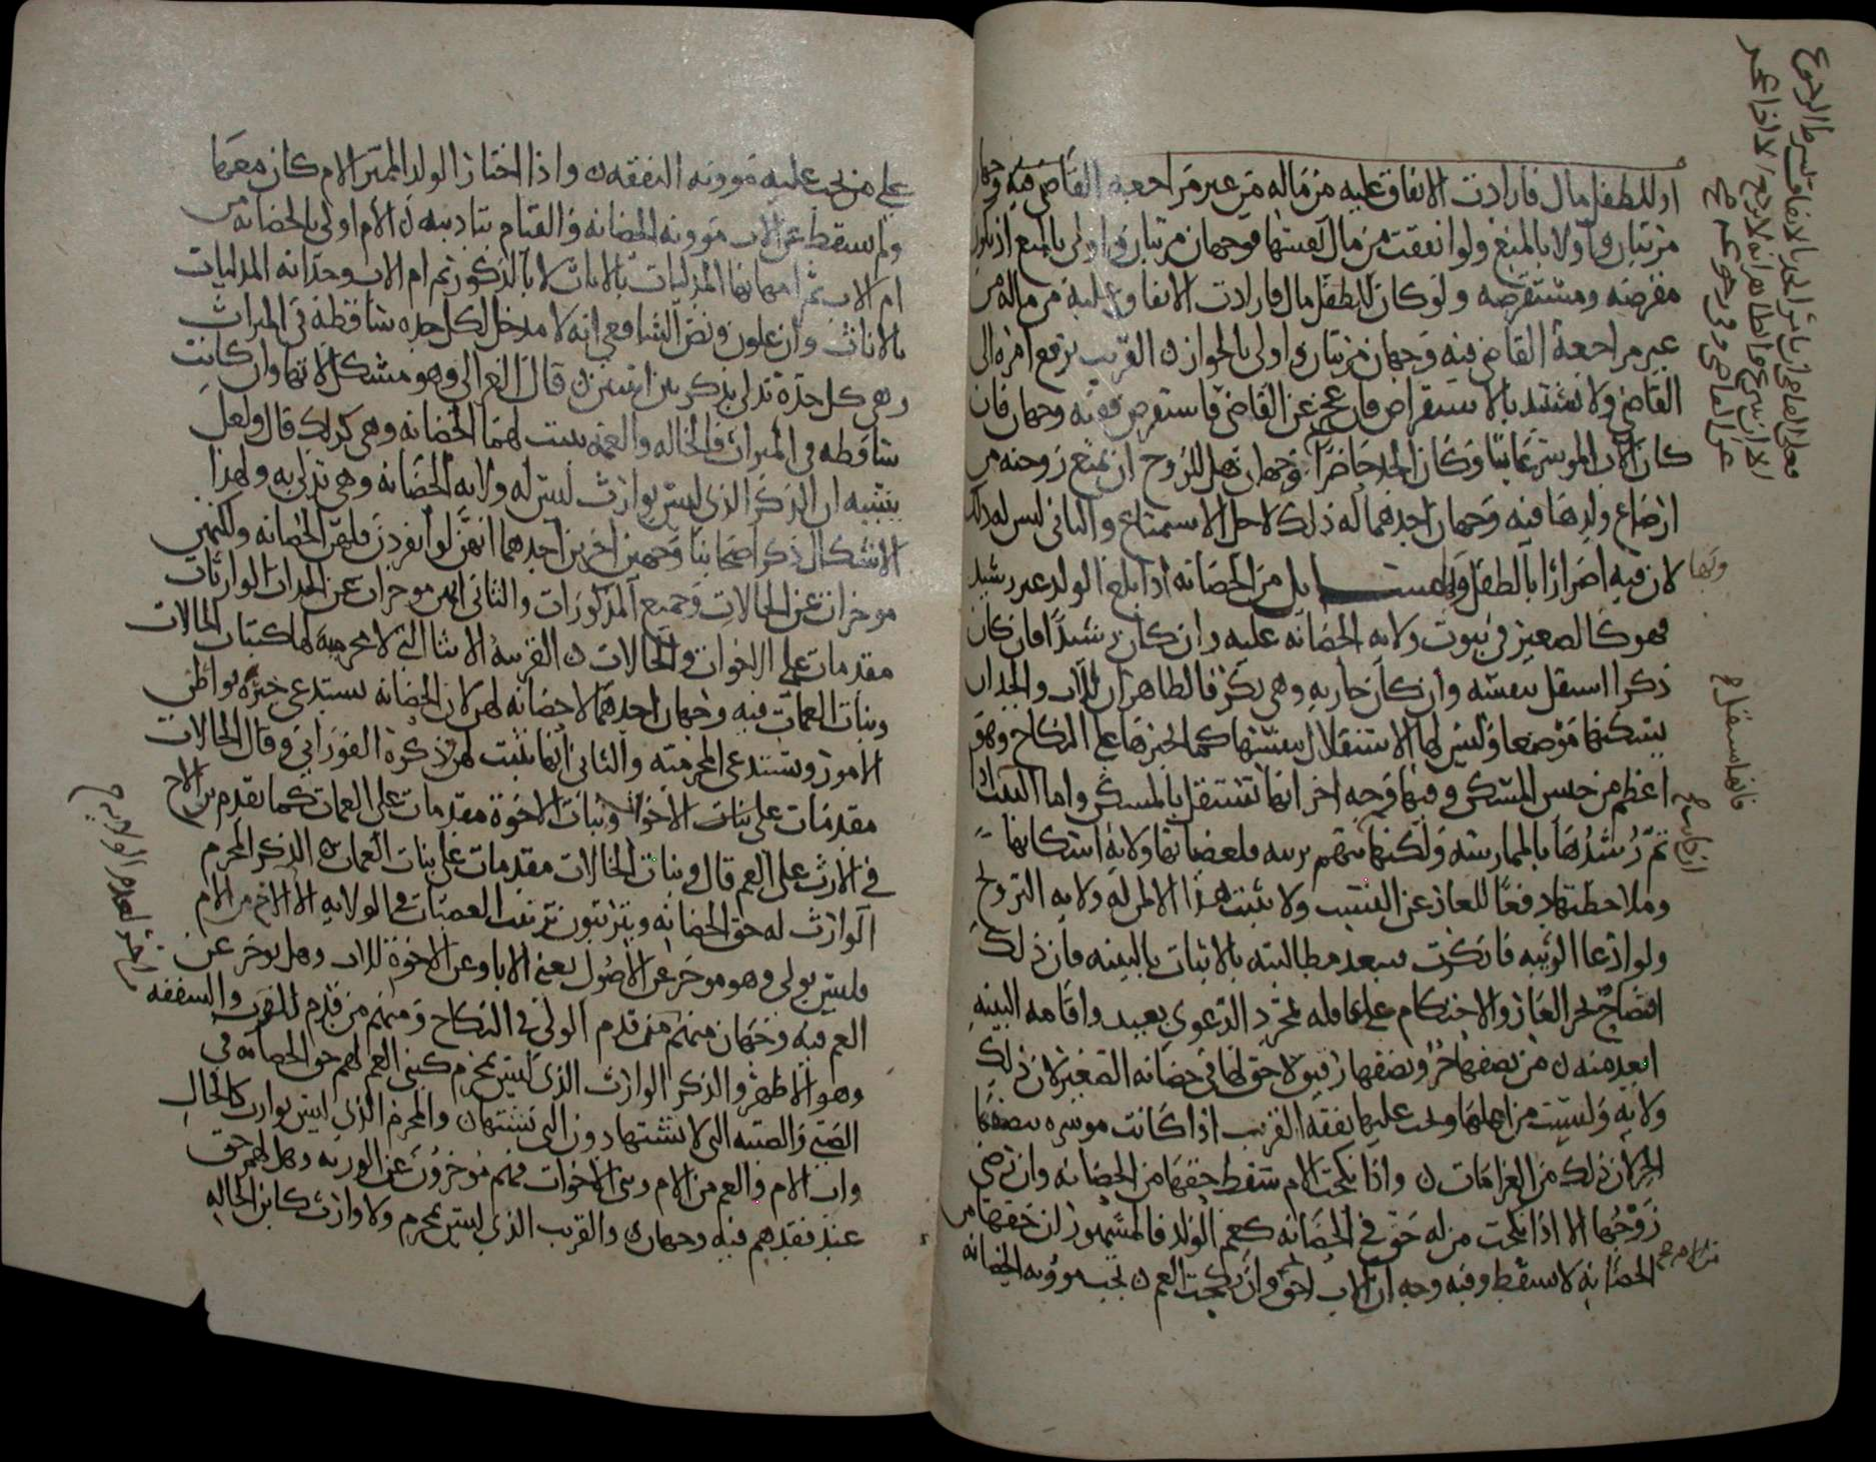 او للطفل مال فارادت الانفاق عليه من ماله من غير مراجعة القاضي فيه وجهان
مرتبان واولا بالمنع ولو انفقت من مال نفسها فوجهان مرتبان واولى بالمنع اذ تكون
مقرضه ومستقرضه ولو كان للطفل مال فارادت الانفاق عليه من ماله من
غير مراجعة القاضي فيه وجهان مرتبان واولى بالجواز ن القريب يرفع امره الى
القاضي ولا يستبد بالاستقراض فان عجز عن القاضي فاستقرض ففيه وجهان فان
كان الاب الموسر غائبا وكان الجد حاضرا فوجهان هل للزوج ان يمنع زوجته من
ارضاع ولدها فيه وجهان احدهما له ذلك لاجل الاستمتاع والثاني ليس له ذلك
لان فيه اضرارا بالطفل ايل من الحضانه اذا بلغ الولد غير رشيد
فهو كالصغير في ثبوت ولاية الحضانه عليه وان كان رشيدا فان كان
ذكرا استقل بنفسه وان كان جاريه وهي بكر فالظاهر ان للاب والجد ان
يسكنها موضعا وليس لها الاستقلال بنفسها كما يجبرها على النكاح وهو
اعظم من حبس المسكن وفيها وجه اخر انها تستقل بالمسكن واما الثيب
تم رشدها بالممارسه ولكنها تتهم بريبه فلعصباتها ولاية اسكانها
وملاحظتها دفعا للعار عن النسب ولا يثبت هذا الا لمن له ولاية التزويج
ولو ادعا الريبه فانكرت فيبعد مطالبته بالاثبات بالبينه فان ذلك
افتضاح بجر العار والاحتكام على عاقله بمجرد الدعوى بعيد واقامه البينه
ابعد منه ن من نصفها حر ونصفها رقيق لا حق لها في حضانه الصغير لان ذلك
ولايه وليست من اهلها ويجب عليها نفقه القريب اذا كانت موسره بنصفها
الحر لان ذلك من الغرامات ن واذا نكحت الام سقط حقها من الحضانه وان رضي
زوجها الا اذا نكحت من له حق في الحضانه كعم الولد فالمشهور ان حقها من
الحضانه لا يسقط وفيه وجه ان الاب احق وان نكحت العم ن تجب موونه الحضانه
على من يجب عليه موونه النفقه ن واذا اختار الولد المميز الام كان معها
ولم يسقط عن الاب موونه الحضانه والقيام بتاديبه ن الام اولى بالحضانه من
ام الاب ثم امهاتها المدليات بالاناث لا بالذكور ثم ام الاب وجداته المدليات
بالاناث وان علون ونص الشافعي انه لا مدخل لكل جده ساقطه في الميراث
وهي كل جدة تدلي بذكر بين انثيين ن قال الغزالي وهو مشكل لانها وان كانت
ساقطه في الميراث فالخاله والعمه يثبت لهما الحضانه وهي كذلك قال ولعل
سببه ان الذكر الذي ليس بوارث ليس له ولايه الحضانه وهي تدلي به ولهذا
الاشكال ذكر اصحابنا وجهين اخرين احدهما انهن لو انفردن فلهن الحضانه ولكنهن
موخرات عن الخالات وجميع المذكورات والثاني انهن موخرات عن الجدات الوارثات
مقدمات على الاخوات والخالات ن القريبه الانثى التي لا محرميه لها كبنات الخالات
وبنات العمات فيه وجهان احدهما لا حضانه لهن لان الحضانه يستدعي خبره بواطن
الامور وتستدعي المحرميه والثاني انها تثبت لهن ذكره الفوراني وقال الخالات
مقدمات على بنات الاخوات وبنات الاخوة مقدمات على العمات كما يقدم بن الاخ
في الارث على العم قال وبنات الخالات مقدمات على بنات العمات ن الذكر المحرم
الوارث له حق الحضانه ويترتبون ترتيب العصبات في الولايه الا الاخ من الام
فليس بولي وهو موخر عن الاصول يعني الابا وعن الاخوة للاب وهل يوخر عن
العم فيه وجهان منهم من قدم الولي في النكاح ومنهم من قدم للقرب والشفقه
وهو الاظهر والذكر الوارث الذي ليس بمحرم كبني العم لهم حق الحضانه في
الصبي والصبيه التي لا تشتها دون التي تشتها ن والمحرم الذي ليس بوارث كالخال
واب الام والعم من الام وبني الاخوات فهم موخرون عن الورثه وهل لهم حق
عند فقدهم فيه وجهان ن والقريب الذي ليس بمحرم ولا وارث كابن الخاله